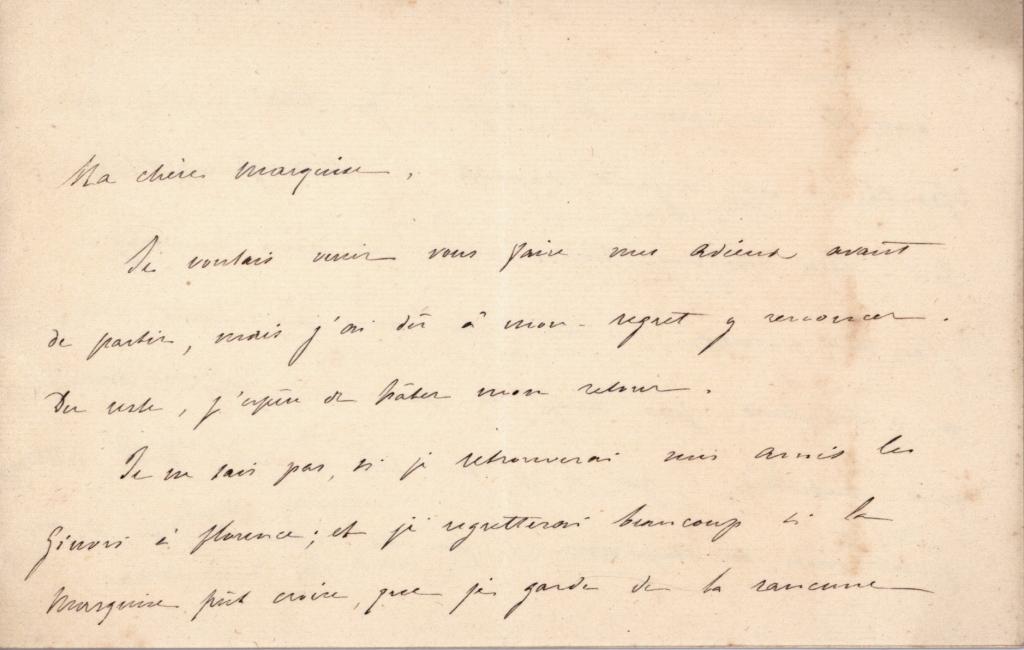 Ma chère Marquise,
Je voulais venir vous faire mes adieux avant
de partir, mais j'ai dû à mon regret y renoncer.
Du reste, j'espère de hâter mon retour.
Je ne sais pas, si je retrouverai mes amis les
Ginori à florence; et je regretterai beaucoup si la
Marquise pût croire, que je garde de la rancune